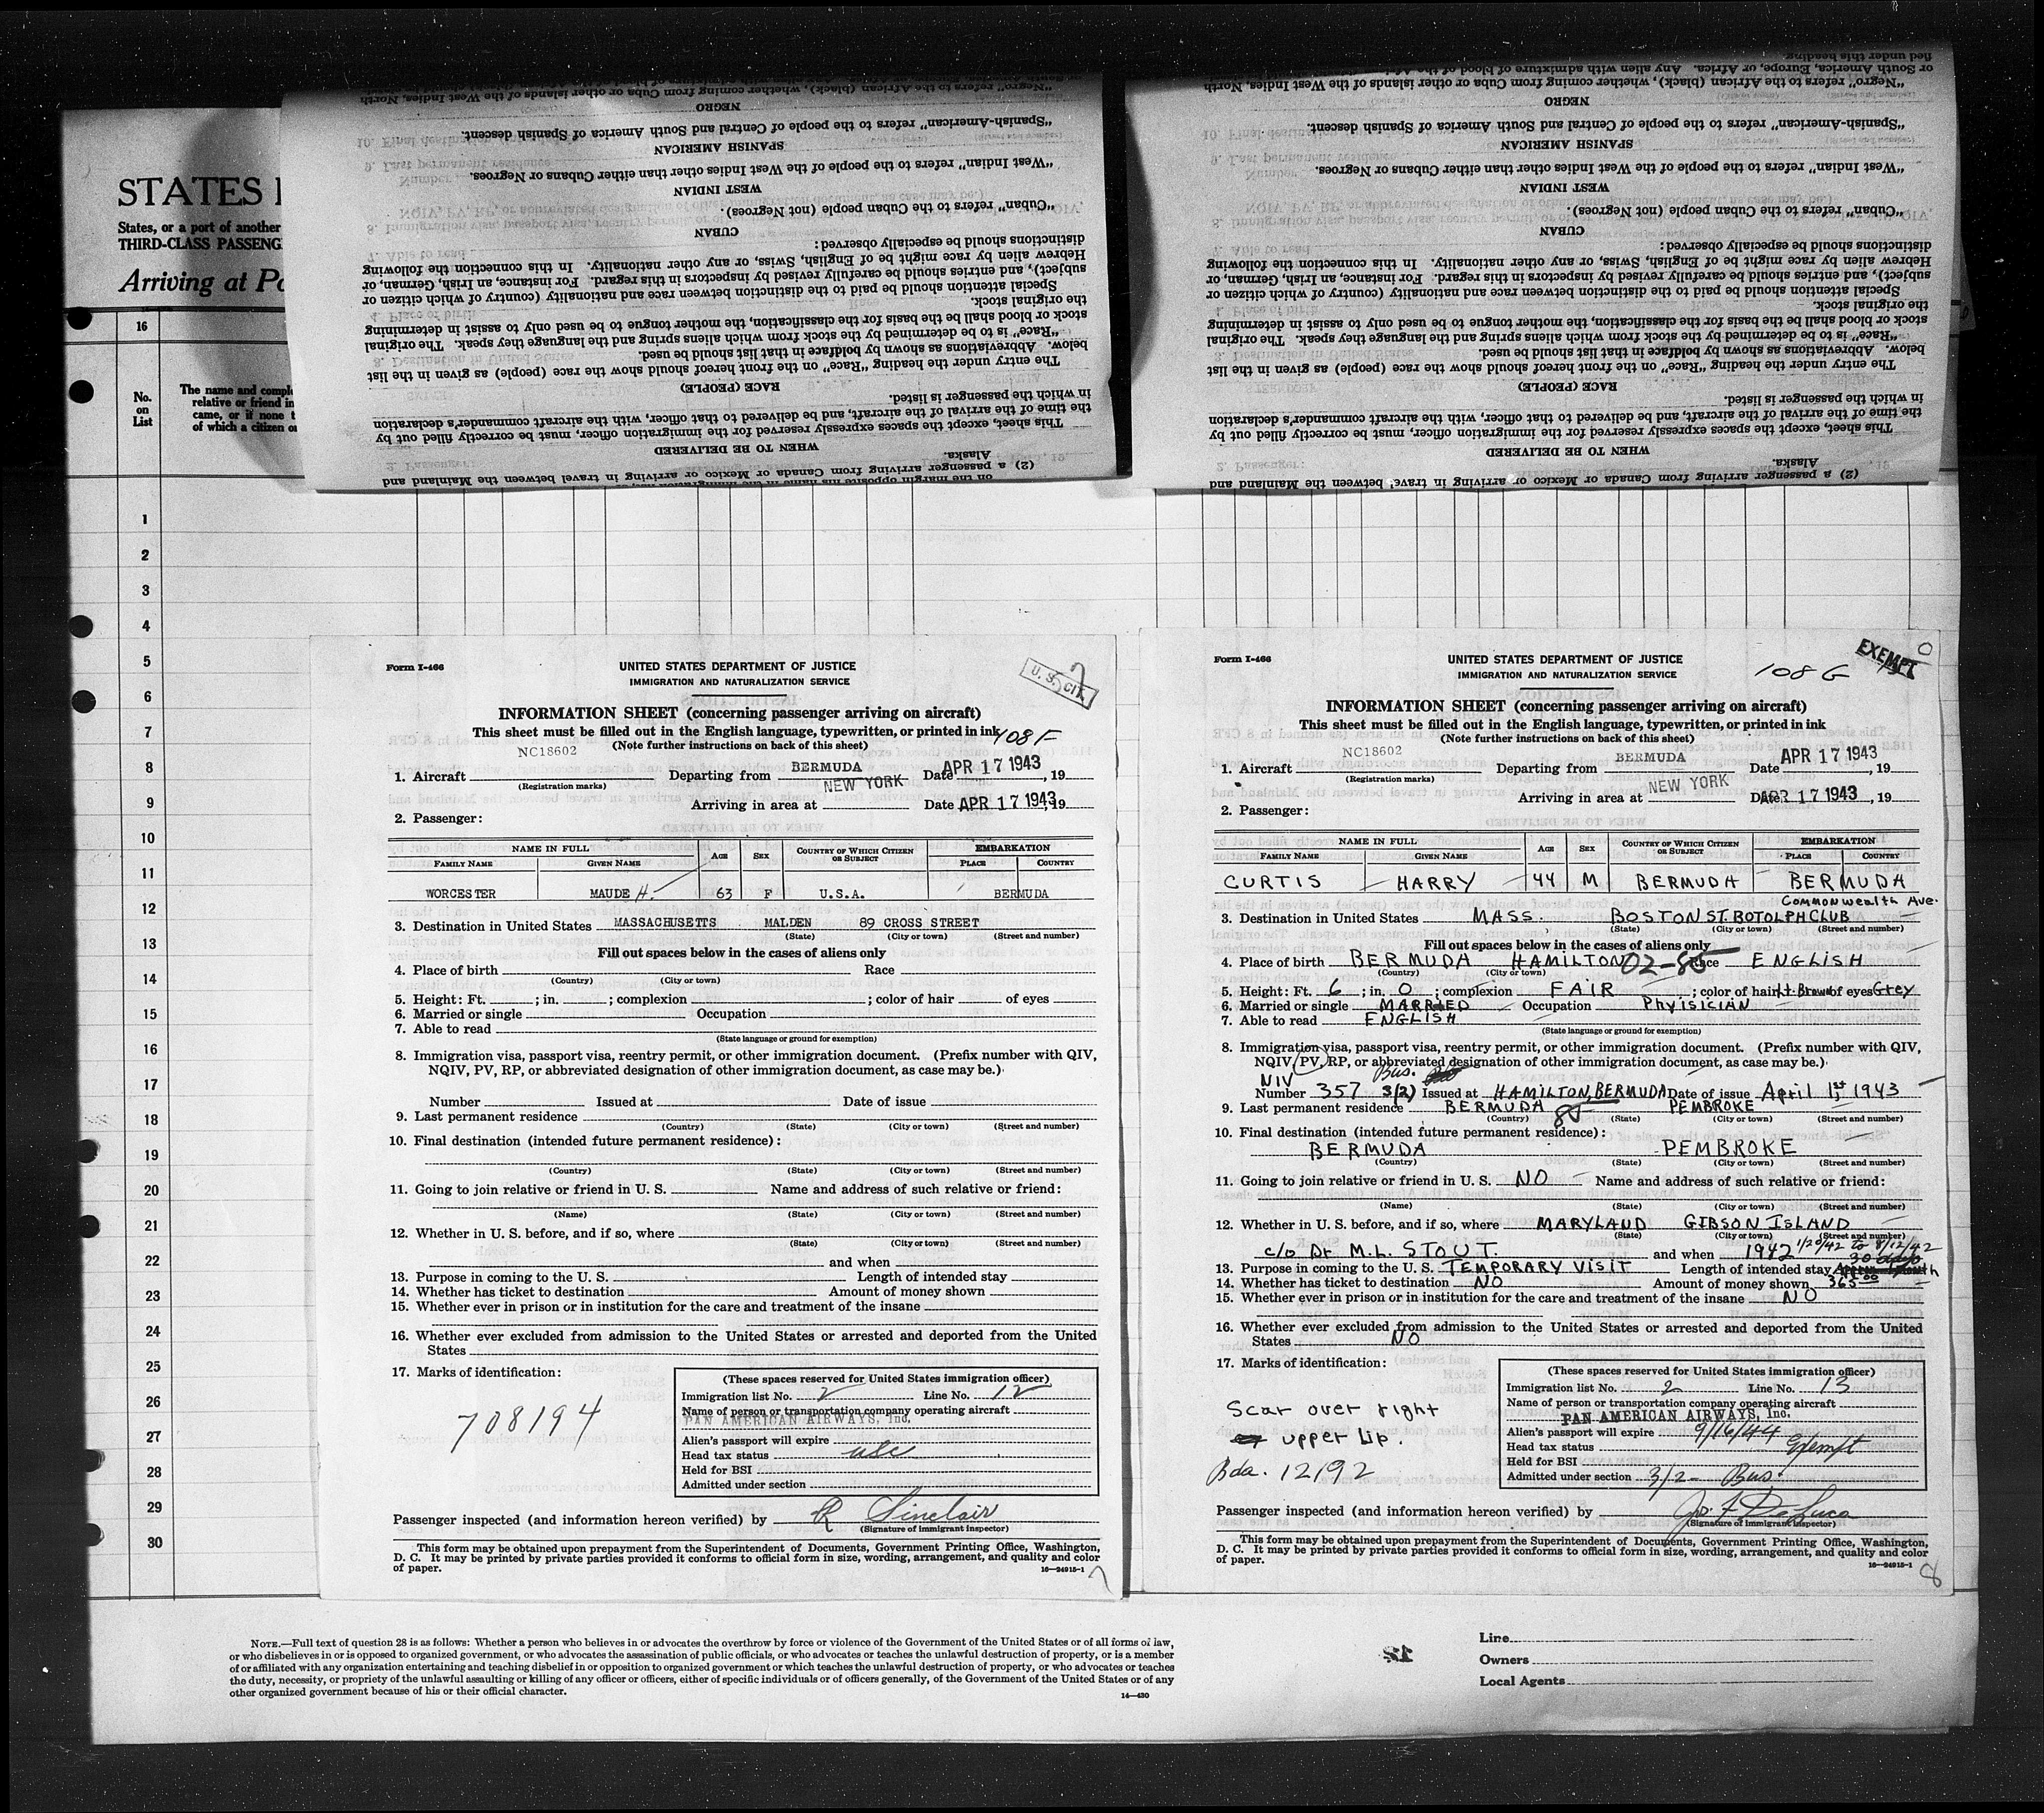 STATES
States, or a port of another
THIRD-CLASS PASSENG
Arriving at Po
16
No.
on
List
The name and compl
relative or friend in
came, or if none t
of which a citizen o
1
2
3
4
5
6
7
8
9
10
11
12
13
14
15
16
17
18
19
20
21
22
23
24
25
26
27
28
29
30
(2) a passenger arriving from Canada or Mexico or arriving in travel between the Mainland and
Alaska.
WHEN TO BE DELIVERED
This sheet, except the spaces expressly reserved for the immigration officer, must be correctly filled out by
the time of the arrival of the aircraft, and be delivered to that officer, with the aircraft commander's declaration
in which the passenger is listed.
RACE (PEOPLE)
The entry under the heading "Race" on the front hereof should show the race (people) as given in the list
below. Abbreviations as shown by boldface in that list should be used.
"Race" is to be determined by the stock from which aliens spring and the language they speak. The original
stock or blood shall be the basis for the classification, the mother tongue to be used only to assist in determining
the original stock.
Special attention should be paid to the distinction between race and nationality (country of which citizen or
subject), and entries should be carefully revised by inspectors in this regard. For instance, an Irish, German, or
Hebrew alien by race might be of English, Swiss, or any other nationality. In this connection the following
distinctions should be especially observed:
CUBAN
"Cuban" refers to the Cuban people (not Negroes).
WEST INDIAN
"West Indian" refers to the people of the West Indies other than either Cubans or Negroes.
SPANISH AMERICAN
"Spanish-American" refers to the people of Central and South America of Spanish descent.
NEGRO
"Negro" refers to the African (black), whether coming from Cuba or other islands of the West Indies, North
(2) a passenger arriving from Canada or Mexico or arriving in travel between the Mainland and
Alaska.
WHEN TO BE DELIVERED
This sheet, except the spaces expressly reserved for the immigration officer, must be correctly filled out by
the time of the arrival of the aircraft, and be delivered to that officer, with the aircraft commander's declaration
in which the passenger is listed.
RACE (PEOPLE)
The entry under the heading "Race" on the front hereof should show the race (people) as given in the list
below. Abbreviations as shown by boldface in that list should be used.
"Race" is to be determined by the stock from which aliens spring and the language they speak. The original
stock or blood shall be the basis for the classification, the mother tongue to be used only to assist in determining
the original stock.
Special attention should be paid to the distinction between race and nationality (country of which citizen or
subject), and entries should be carefully revised by inspectors in this regard. For instance, an Irish, German, or
Hebrew alien by race might be of English, Swiss, or any other nationality. In this connection the following
distinctions should be especially observed:
CUBAN
"Cuban" refers to the Cuban people (not Negroes).
WEST INDIAN
"West Indian" refers to the people of the West Indies other than either Cubans or Negroes.
SPANISH AMERICAN
"Spanish-American" refers to the people of Central and South America of Spanish descent.
NEGRO
"Negro" refers to the African (black), whether coming from Cuba or other islands of the West Indies, North
or South America, Europe, or Africa. Any alien with admixture of blood of the
fied under this heading.
Form I-466
UNITED STATES DEPARTMENT OF JUSTICE
IMMIGRATION AND NATURALIZATION SERVICE
U. S. CIT.
INFORMATION SHEET (concerning passenger arriving on aircraft)
This sheet must be filled out in the English language, typewritten, or printed in ink
108 F
(Note further instructions on back of this sheet)
1. Aircraft NC18602 Departing from BERMUDA Date APR 17 1943, 19
(Registration marks)
Arriving in area at NEW YORK Date APR 17 1943, 19
2. Passenger:
NAME IN FULL AGE SEX COUNTRY OF WHICH CITIZEN OR SUBJECT EMBARKATION
FAMILY NAME GIVEN NAME PLACE COUNTRY
WORCESTER MAUDE H. 63 F U.S.A. BERMUDA
3. Destination in United States MASSACHUSETTS MALDEN 89 CROSS STREET
(State) (City or town) (Street and number)
Fill out spaces below in the cases of aliens only
4. Place of birth Race
(Country) (City or town)
5. Height: Ft. ; in. ; complexion ; color of hair of eyes
6. Married or single Occupation
7. Able to read
(State language or ground for exemption)
8. Immigration visa, passport visa, reentry permit, or other immigration document. (Prefix number with QIV,
NQIV, PV, RP, or abbreviated designation of other immigration document, as case may be.)
Number Issued at Date of issue
9. Last permanent residence
(Country) (State) (City or town) (Street and number)
10. Final destination (intended future permanent residence):
(Country) (State) (City or town) (Street and number)
11. Going to join relative or friend in U. S. Name and address of such relative or friend:
(Name) (State) (City or town) (Street and number)
12. Whether in U. S. before, and if so, where
(State) (City or town) (Street and number)
and when
13. Purpose in coming to the U. S. Length of intended stay
14. Whether has ticket to destination Amount of money shown
15. Whether ever in prison or in institution for the care and treatment of the insane
16. Whether ever excluded from admission to the United States or arrested and deported from the United
States
17. Marks of identification:
708194
(These spaces reserved for United States immigration officer)
Immigration list No. 2 Line No. 12
Name of person or transportation company operating aircraft
PAN AMERICAN AIRWAYS, Inc.
Alien's passport will expire
Head tax status usc
Held for BSI
Admitted under section
Passenger inspected (and information hereon verified) by R Sinclair
(Signature of immigrant inspector)
This form may be obtained upon prepayment from the Superintendent of Documents, Government Printing Office, Washington,
D. C. It may be printed by private parties provided it conforms to official form in size, wording, arrangement, and quality and color
of paper.
16—24915-1
7
Form I-466
UNITED STATES DEPARTMENT OF JUSTICE
IMMIGRATION AND NATURALIZATION SERVICE
108 G
EXEMPT
INFORMATION SHEET (concerning passenger arriving on aircraft)
This sheet must be filled out in the English language, typewritten, or printed in ink
(Note further instructions on back of this sheet)
1. Aircraft NC18602 Departing from BERMUDA Date APR 17 1943, 19
(Registration marks)
Arriving in area at NEW YORK Date APR 17 1943, 19
2. Passenger:
NAME IN FULL AGE SEX COUNTRY OF WHICH CITIZEN OR SUBJECT EMBARKATION
FAMILY NAME GIVEN NAME PLACE COUNTRY
CURTIS HARRY 44 M BERMUDA BERMUDA
Commonwealth Ave.
3. Destination in United States MASS. BOSTON ST. BOTOLPH CLUB
(State) (City or town) (Street and number)
Fill out spaces below in the cases of aliens only
4. Place of birth BERMUDA HAMILTON 02-85 Race ENGLISH
(Country) (City or town)
5. Height: Ft. 6 ; in. 0 ; complexion FAIR ; color of hair Lt. Brown of eyes Grey
6. Married or single MARRIED Occupation PHYISICIAN
7. Able to read ENGLISH
(State language or ground for exemption)
8. Immigration visa, passport visa, reentry permit, or other immigration document. (Prefix number with QIV,
NQIV, PV, RP, or abbreviated designation of other immigration document, as case may be.)
NIV Bus.
Number 357 3(2) Issued at HAMILTON, BERMUDA Date of issue April 1st, 1943
9. Last permanent residence BERMUDA 85 PEMBROKE
(Country) (State) (City or town) (Street and number)
10. Final destination (intended future permanent residence):
BERMUDA PEMBROKE
(Country) (State) (City or town) (Street and number)
11. Going to join relative or friend in U. S. NO Name and address of such relative or friend:
(Name) (State) (City or town) (Street and number)
12. Whether in U. S. before, and if so, where MARYLAND GIBSON ISLAND
(State) (City or town) (Street and number)
c/o Dr M.L. STOUT. and when 1942 1/20/42 to 8/12/42
30 days
13. Purpose in coming to the U. S. TEMPORARY VISIT Length of intended stay
14. Whether has ticket to destination NO Amount of money shown 365.00
15. Whether ever in prison or in institution for the care and treatment of the insane NO
16. Whether ever excluded from admission to the United States or arrested and deported from the United
States NO
17. Marks of identification:
Scar over right
upper lip.
Bda. 12192
(These spaces reserved for United States immigration officer)
Immigration list No. 2 Line No. 13
Name of person or transportation company operating aircraft
PAN AMERICAN AIRWAYS, Inc.
Alien's passport will expire 9/16/44
Head tax status Exempt
Held for BSI
Admitted under section 3/2 - Bus.
Passenger inspected (and information hereon verified) by Jos. F. DeLuca
(Signature of immigrant inspector)
This form may be obtained upon prepayment from the Superintendent of Documents, Government Printing Office, Washington,
D. C. It may be printed by private parties provided it conforms to official form in size, wording, arrangement, and quality and color
of paper.
16—24915-1
8
NOTE.—Full text of question 28 is as follows: Whether a person who believes in or advocates the overthrow by force or violence of the Government of the United States or of all forms of law,
or who disbelieves in or is opposed to organized government, or who advocates the assassination of public officials, or who advocates or teaches the unlawful destruction of property, or is a member
of or affiliated with any organization entertaining and teaching disbelief in or opposition to organized government or which teaches the unlawful destruction of property, or who advocates or teaches
the duty, necessity, or propriety of the unlawful assaulting or killing of any officer or officers, either of specific individuals or of officers generally, of the Government of the United States or of any
other organized government because of his or their official character.
14—430
12
Line
Owners
Local Agents